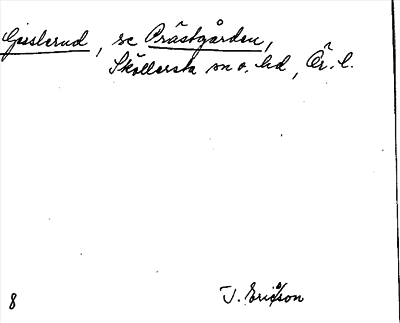 Gisslerud, se Prästgården,
Sköllersta sn o. hd, Ör. l.
8
J. Ericson